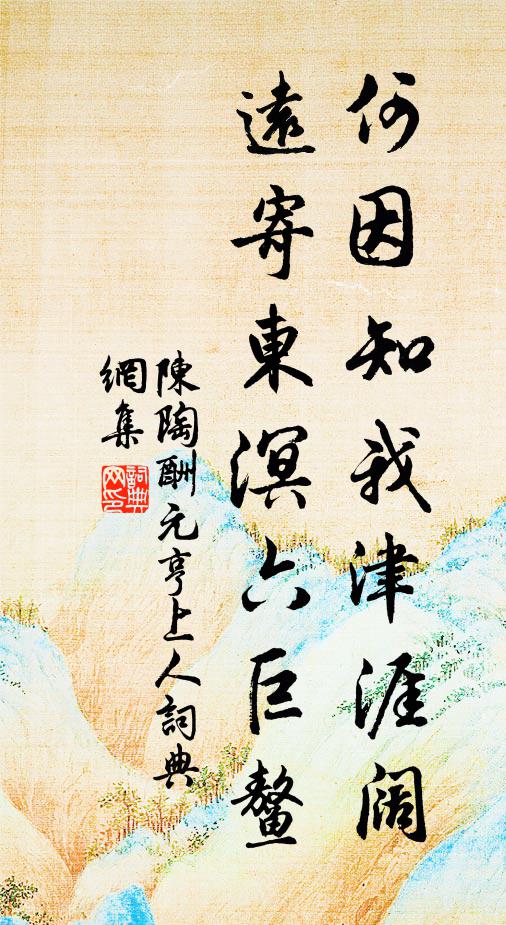 何因知我津涯阔
遠寄東溟六巨鰲
陳陶酬元亨上人詞典
網集
詞典
网印